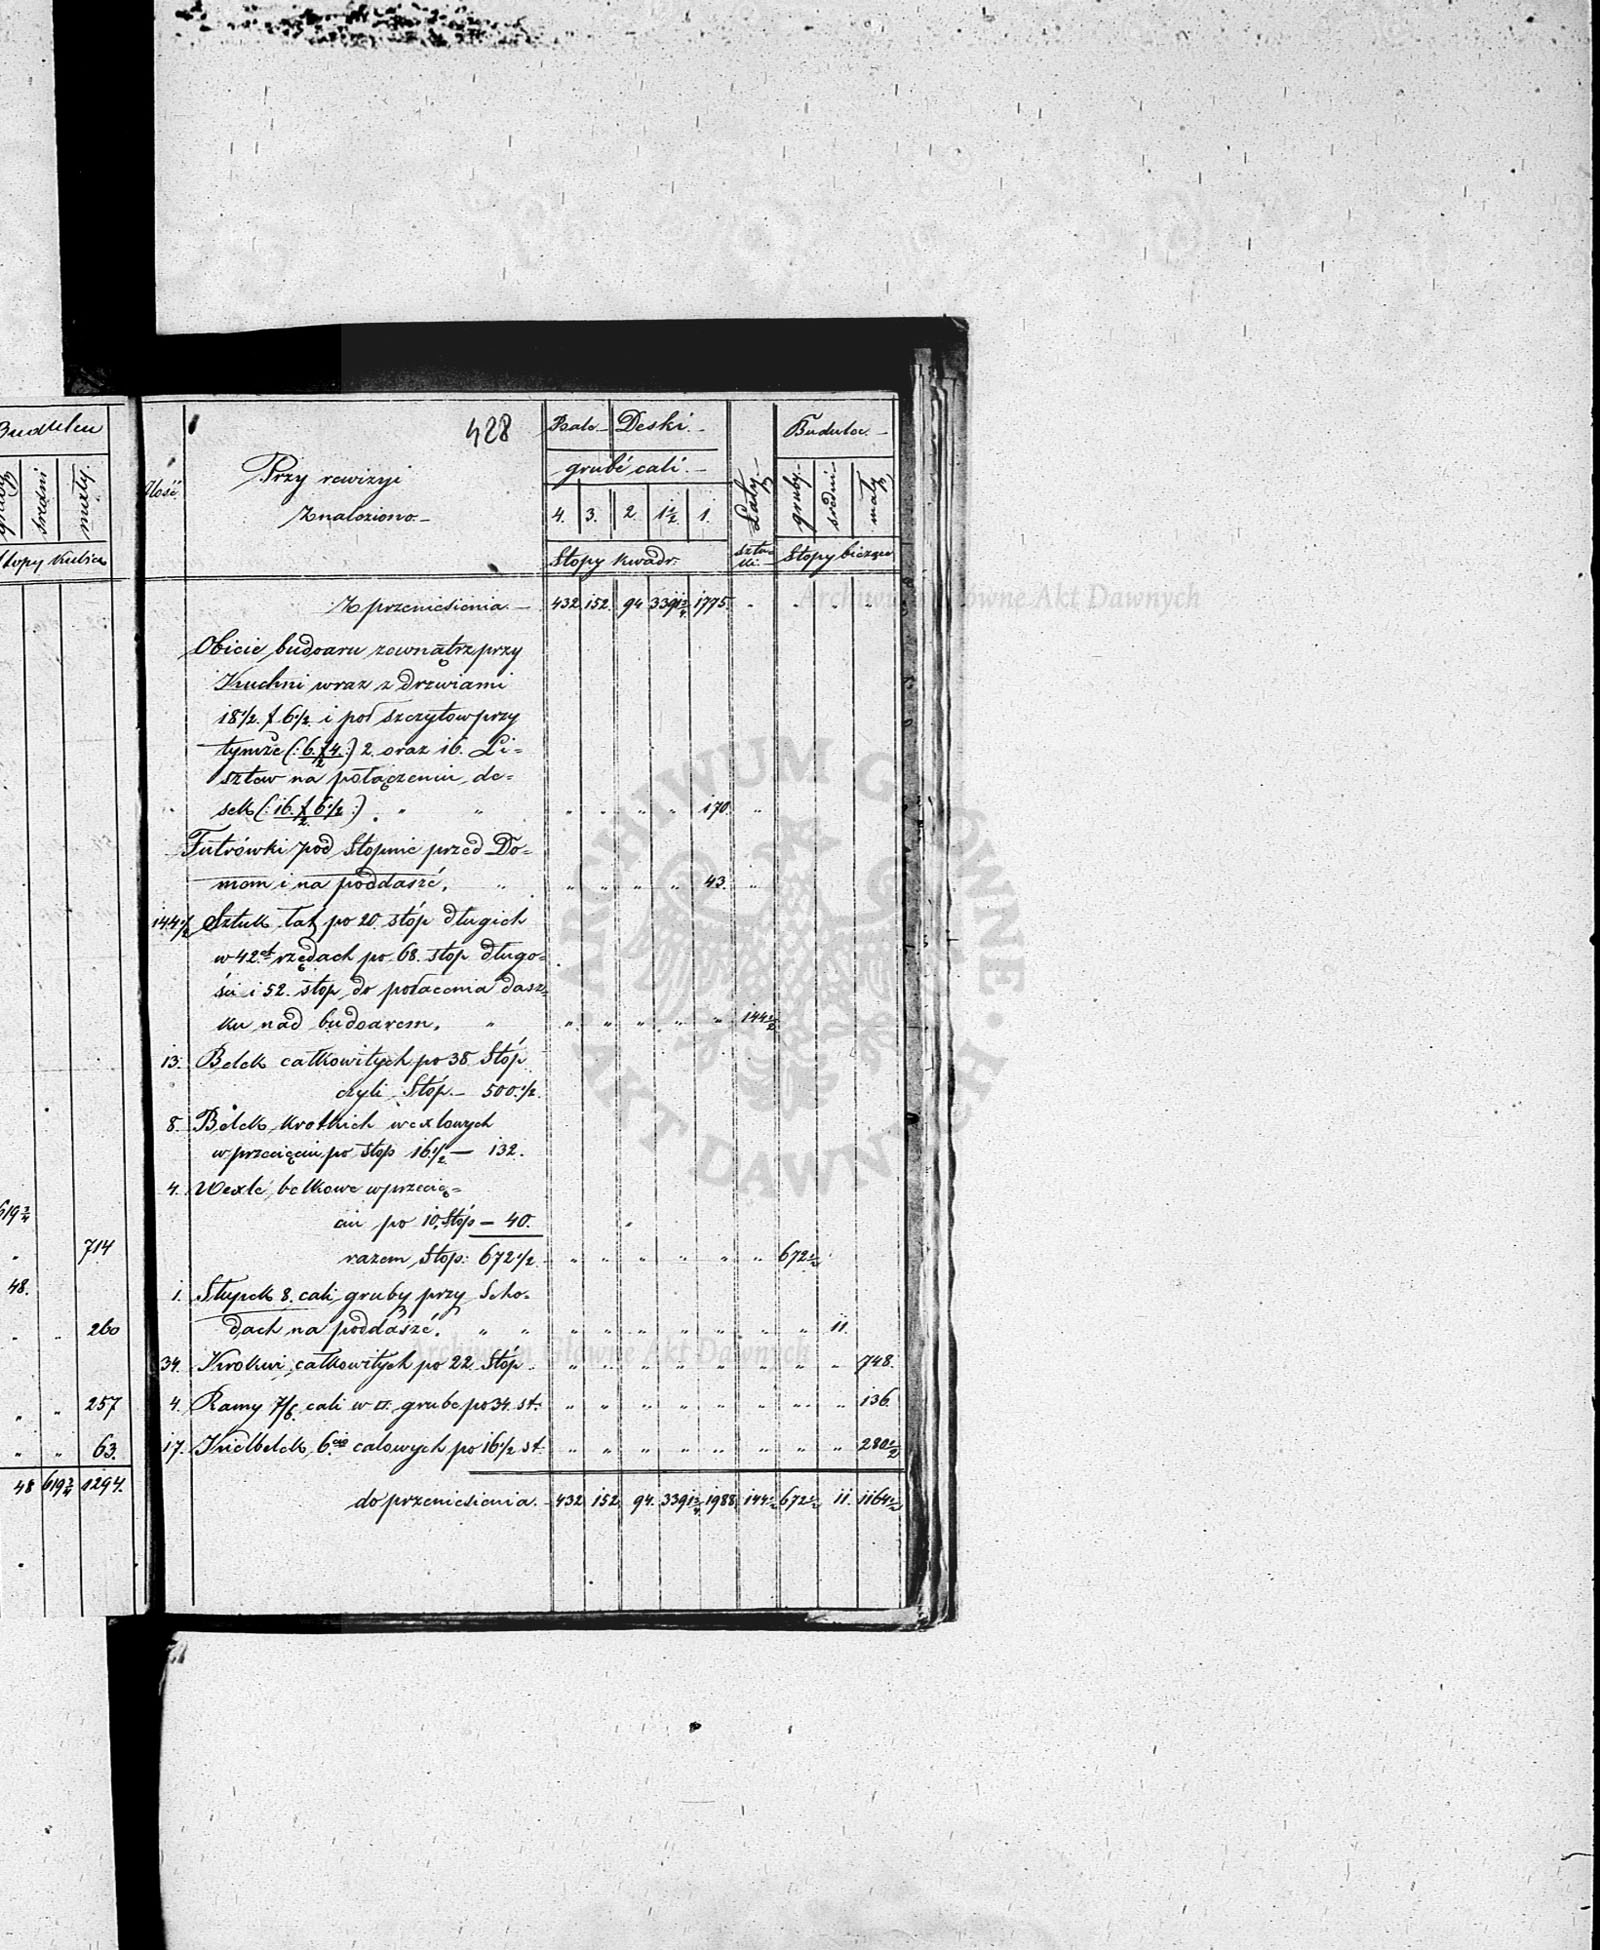 Budulcu
średni
Stopy Kubicz
619 3/4
714
48.
" " 260
" " 257
" " 63.
48 619 3/4 1294.
428
Ilość
Przy rewizyi
Znaleziono.—
Bale.— Deski.—
grubé cali.—
4. 3. 2. 1 1/2 1.
Stopy kwadr.
Łaty.
sztu-
ki.—
Budulec.—
gruby.— średni.— mały
Stopy bieżące
Z przeniesienia.— 432 152. 94 339 1/4 1775. " " " "
Obicie budoaru zewnątrz przy
Kuchni wraz z drzwiami
18 1/2. f 6 1/2. i pod szczytow przy
tymże (: 6. f 4. :) 2. oraz 16. Li=
2
sztew na połączeniu de=
sek (: 16. f 6 1/2 :) . " " " " " " 170. "
2.
Futrówki pod Stopnie przed Do=
mem i na poddasze. " " " " " 43. "
144 1/2 Sztuk łat po 20. stóp długich
w 42.ch rzędach po 68. stóp długo=
ści i 52. stóp do połacenia dasz=
ku nad budoarem. " " " " " " 144 1/2
13. Belek całkowitych po 38 Stóp
czyli Stóp.— 500 1/2.
8. Belek krotkich wexlowych
w przecięciu po stóp 16 1/2 — 132.
4. Wexle belkowe w przecię=
ciu po 10. Stóp — 40.
razem Stop: 672 1/2. " " " " " " 672 1/2
1. Słupek 8. cali gruby przy Scho=
dach na poddasze. " " " " " " " " " 11.
34. Krokwi całkowitych po 22 Stóp. " " " " " " " " 748.
4. Ramy 7/6. cali w □. grube po 34. st: " " " " " " " " 136.
17. Kielbelek 6.cio calowych po 16 1/2 st. " " " " " " " " 280 1/2
do przeniesienia.— 432 152 94. 339 1/4 1988 144 1/2 672 1/2 11. 1164 1/2
Archiwum Główne Akt Dawnych
ARCHIWUM GŁÓWNE • AKT DAWNYCH •
Archiwum Główne Akt Dawnych